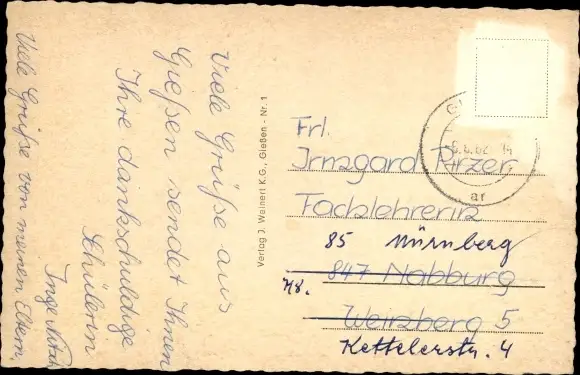 Viele Grüße aus
Gießen sendet Ihnen
Ihre dankschuldige
Schülerin
Inge
Viele Grüße von meinen Eltern.
Verlag J. Weinert K.G., Gießen - Nr. 1
6.62 14
ar
Frl.
Irmgard Pirzer
Fachlehrerin
85 Nürnberg
847 Nabburg
Weinzberg 5
Kettelerstr. 4